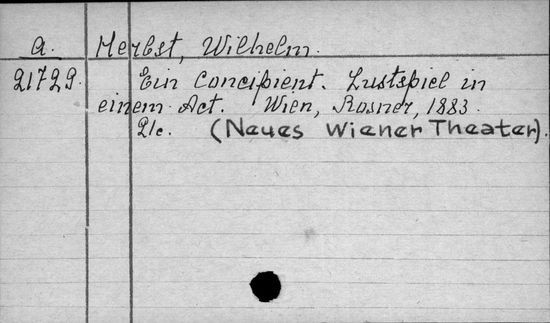 a. Merbst, Wilhelm.
21729. Ein Concipient. Lustspiel in
einem Act. Wien, Rosner, 1883.
21c. (Neues Wiener Theater).